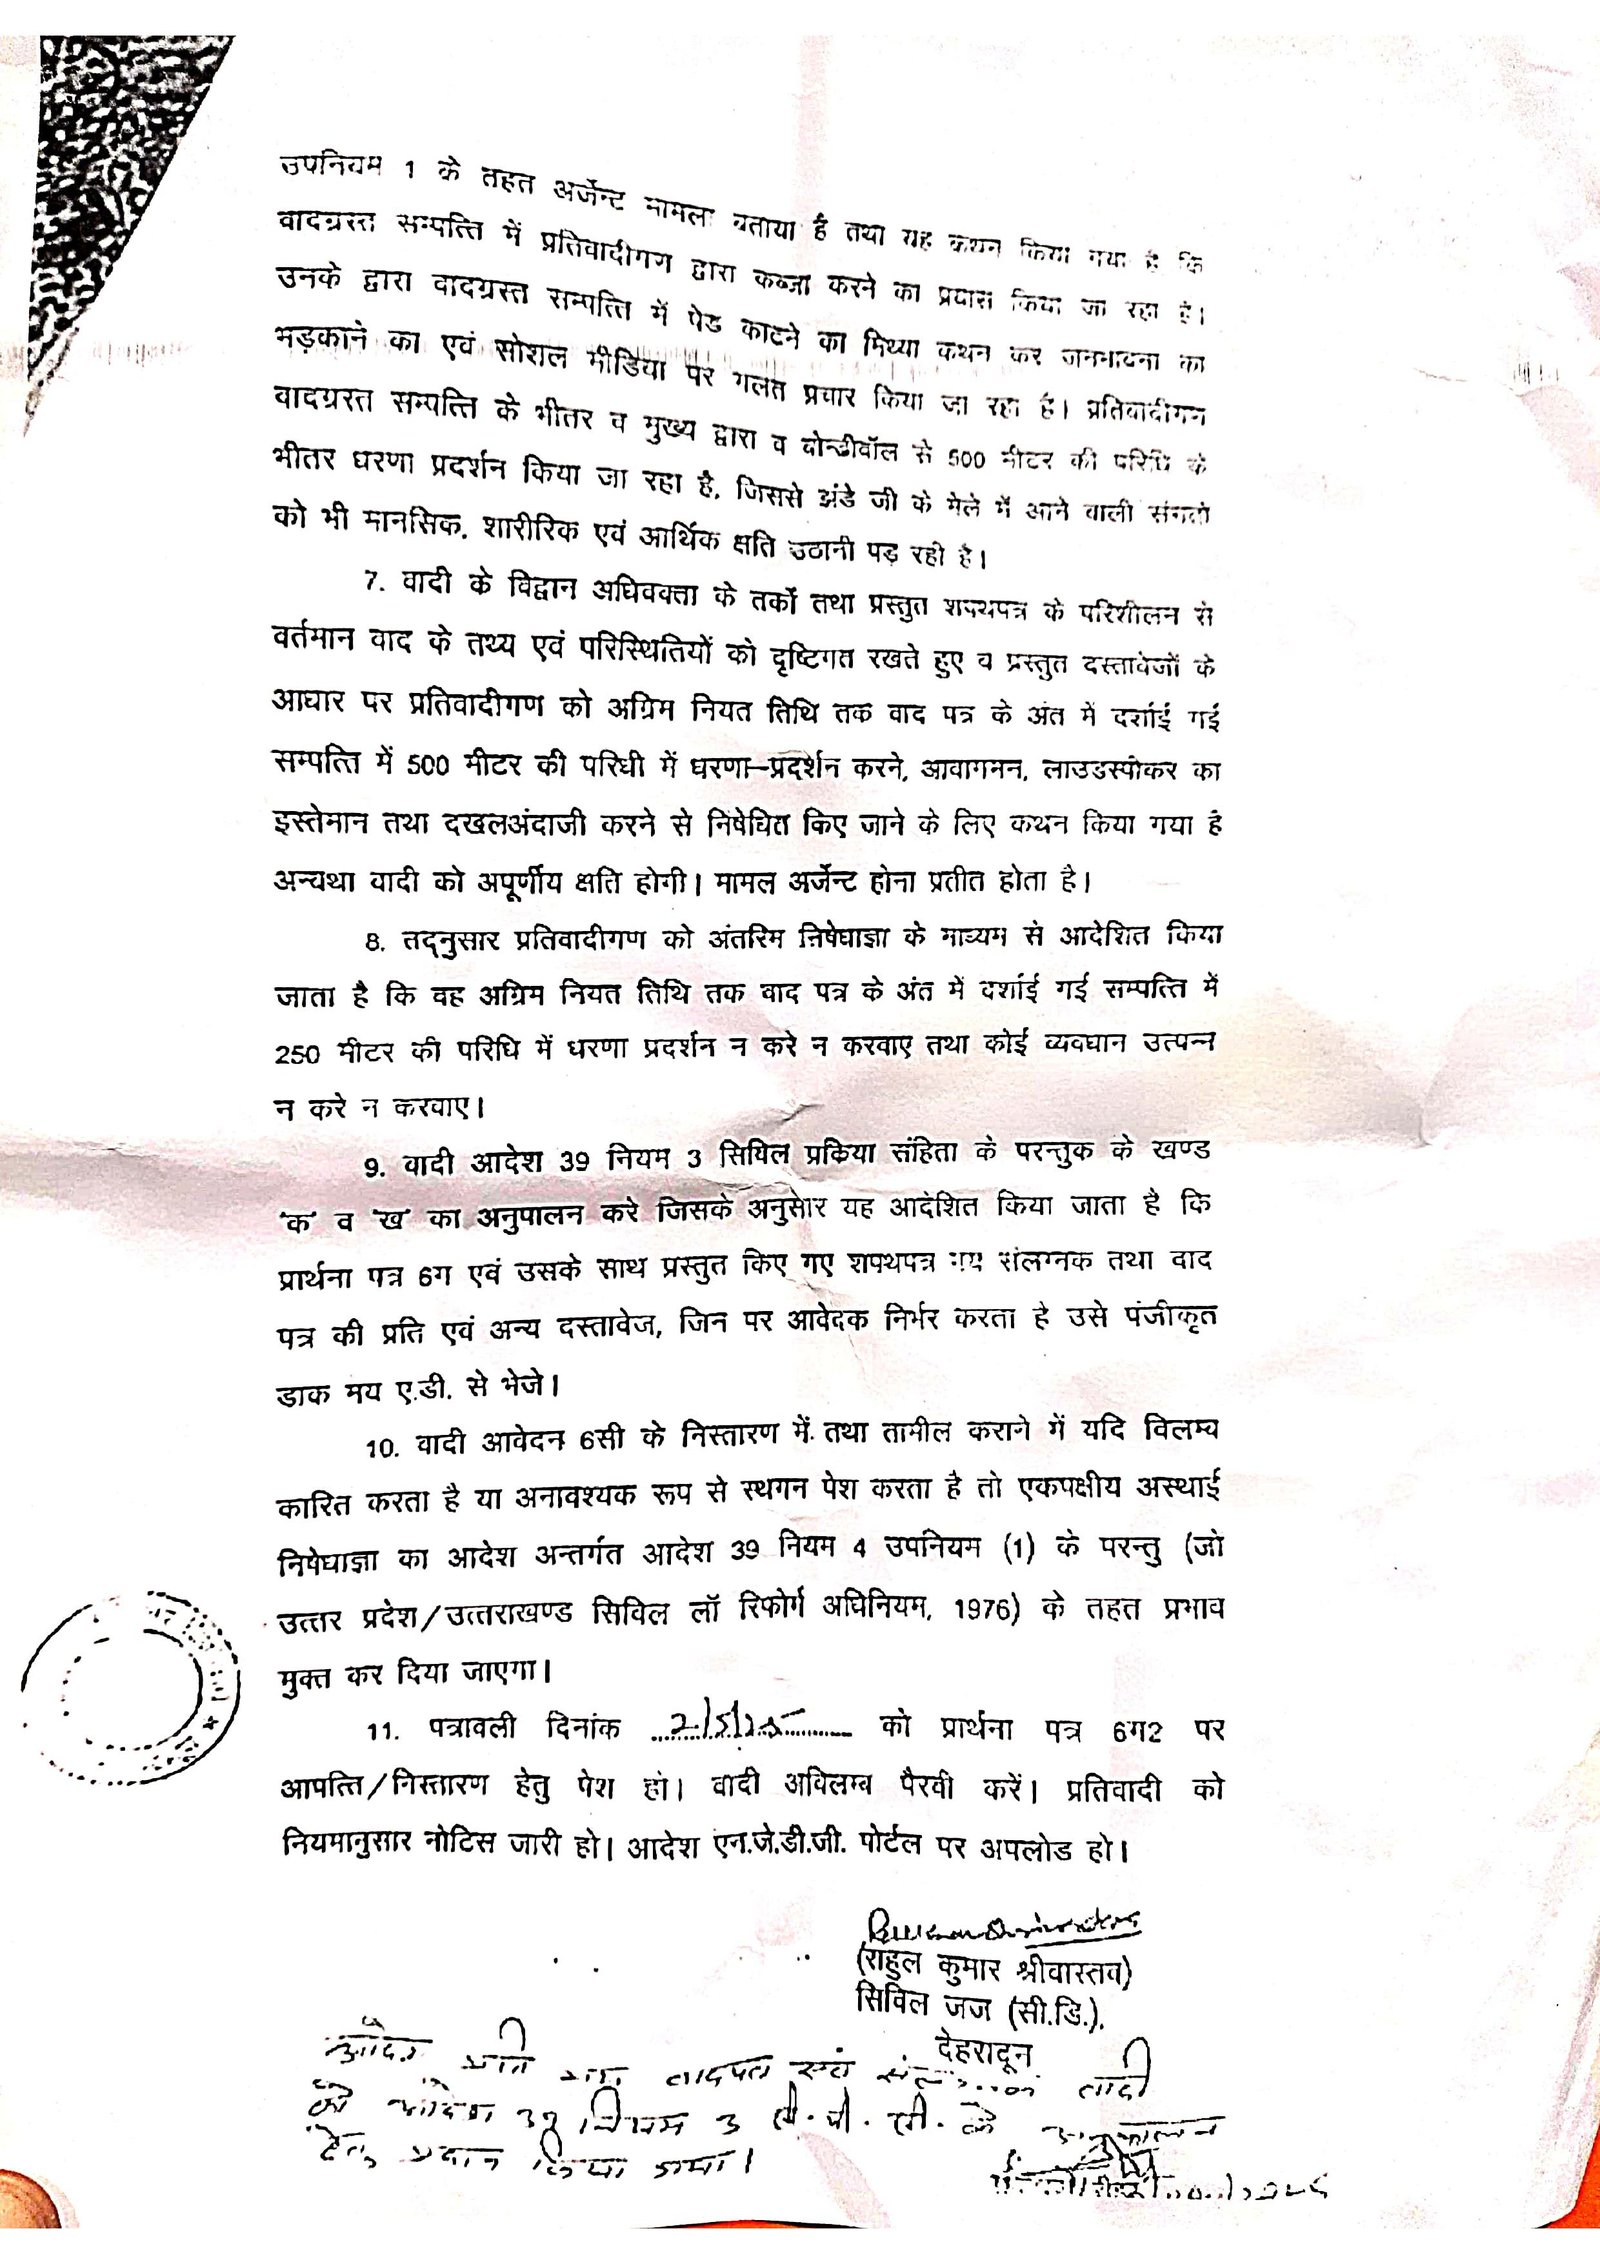 उपनियम 1 के तहत अर्जेन्ट मामला बताया है तथा यह कथन किया गया है कि
वादग्रस्त सम्पत्ति में प्रतिवादीगण द्वारा कब्जा करने का प्रयास किया जा रहा है।
उनके द्वारा वादग्रस्त सम्पत्ति में पेड काटने का मिथ्या कथन कर जनभावना का
भड़काने का एवं सोशल मीडिया पर गलत प्रचार किया जा रहा है। प्रतिवादीगन
वादग्ररत सम्पत्ति के भीतर व मुख्य द्वारा व वोन्डीवॉल से 500 मीटर की परिधि के
भीतर धरणा प्रदर्शन किया जा रहा है, जिससे झंडे जी के मेले में आने वाली संगतो
को भी मानसिक, शारीरिक एवं आर्थिक क्षति उठानी पड़ रही है।
7. वादी के विद्वान अधिवक्ता के तर्को तथा प्रस्तुत शपथपत्र के परिशीलन से
वर्तमान वाद के तथ्य एवं परिस्थितियों को दृष्टिगत रखते हुए व प्रस्तुत दस्तावेजों के
आधार पर प्रतिवादीगण को अग्रिम नियत तिथि तक वाद पत्र के अंत में दर्शाई गई
सम्पत्ति में 500 मीटर की परिधी में धरणा–प्रदर्शन करने, आवागमन, लाउडस्पीकर का
इस्तेमान तथा दखलअंदाजी करने से निषेधित किए जाने के लिए कथन किया गया है
अन्यथा वादी को अपूर्णीय क्षति होगी। मामल अर्जेन्ट होना प्रतीत होता है।
8. तद्नुसार प्रतिवादीगण को अंतरिम निषेधाज्ञा के माध्यम से आदेशित किया
जाता है कि वह अग्रिम नियत तिथि तक वाद पत्र के अंत में दर्शाई गई सम्पत्ति में
250 मीटर की परिधि में धरणा प्रदर्शन न करे न करवाए तथा कोई व्यवधान उत्पन्न
न करे न करवाए।
9. वादी आदेश 39 नियम 3 सिविल प्रकिया संहिता के परन्तुक के खण्ड
'क' व 'ख' का अनुपालन करे जिसके अनुसार यह आदेशित किया जाता है कि
प्रार्थना पत्र 6ग एवं उसके साथ प्रस्तुत किए गए शपथपत्र मय संलग्नक तथा वाद
पत्र की प्रति एवं अन्य दस्तावेज, जिन पर आवेदक निर्भर करता है उसे पंजीकृत
डाक मय ए.डी. से भेजे।
10. वादी आवेदन 6सी के निस्तारण में तथा तामील कराने में यदि विलम्ब
कारित करता है या अनावश्यक रूप से स्थगन पेश करता है तो एकपक्षीय अस्थाई
निषेधाज्ञा का आदेश अन्तर्गत आदेश 39 नियम 4 उपनियम (1) के परन्तु (जो
उत्तर प्रदेश/उत्तराखण्ड सिविल लॉ रिफोर्ग अधिनियम, 1976) के तहत प्रभाव
मुक्त कर दिया जाएगा।
11. पत्रावली दिनांक 2/5/25 को प्रार्थना पत्र 6ग2 पर
आपत्ति/निस्तारण हेतु पेश हो। वादी अविलम्ब पैरवी करें। प्रतिवादी को
नियमानुसार नोटिस जारी हो। आदेश एन.जे.डी.जी. पोर्टल पर अपलोड हो।
(राहुल कुमार श्रीवास्तव)
सिविल जज (सी.डि.),
देहरादून
आदेश प्रति मय वादपत्र एवं वादी
को आदेश 39 नियम 3 सी.पी.सी. के अनुपालन
हेतु प्रदान किया गया।